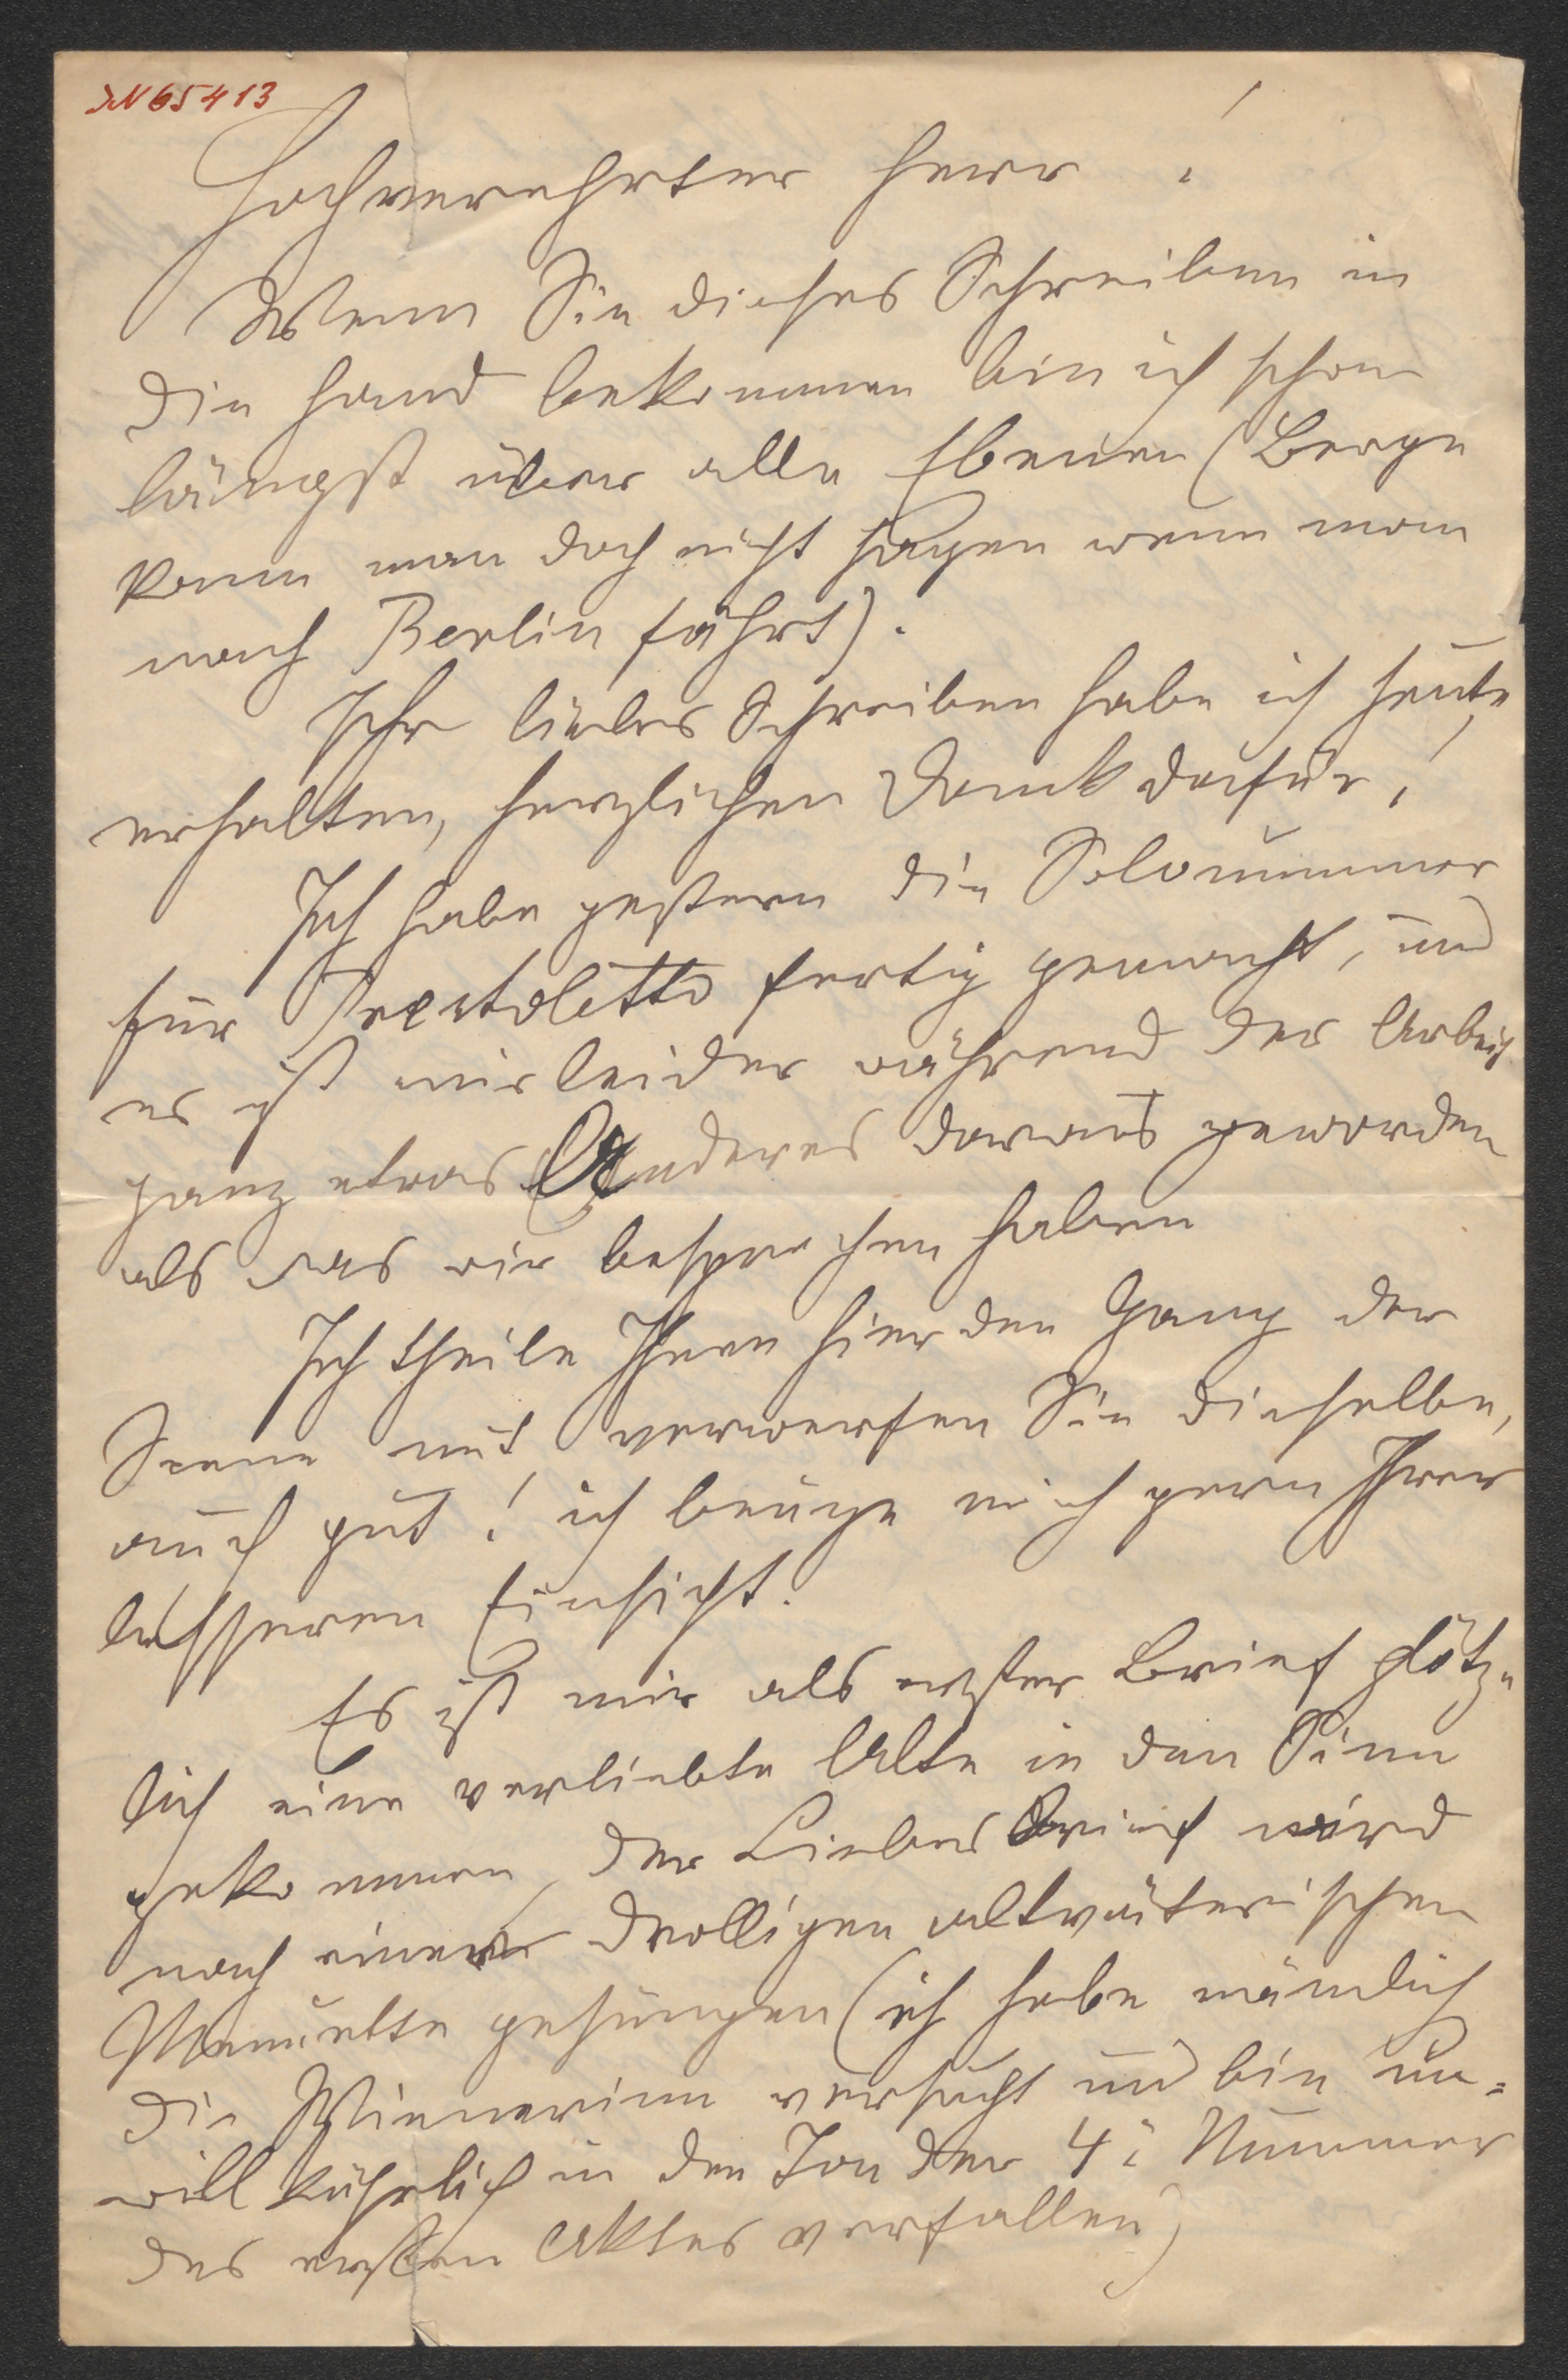 IN 65413
Hochverehrter Herr!
Wenn Sie dieses Schreiben in
die Hand bekommen bin ich schon
längst über alle Ebenen (Berge
kann man doch nicht sagen wenn man
nach Berlin fährt).
Ihr liebes Schreiben habe ich heute
erhalten, herzlichen Dank dafür!
Ich habe gestern die Solonummer
für fertig gemacht, und
es ist mir leider während der Arbeit
ganz etwas Anderes daraus geworden
als was wir besprochen haben
Ich theile Ihnen hier den Gang der
Scene mit verwerfen Sie dieselbe,
auch gut! ich beuge mich gern Ihrer
besseren Einsicht.
Es ist mir als erster Brief plötz-
lich eine verliebte Alte in den Sinn
gekommen, der Liebesbrief wird
nach einer drolligen altväterischen
Menuette gesungen (ich habe nämlich
die Wienerinn versucht und bin un-
willkührlich in den Ton der 4. Nummer
des ersten Aktes verfallen)